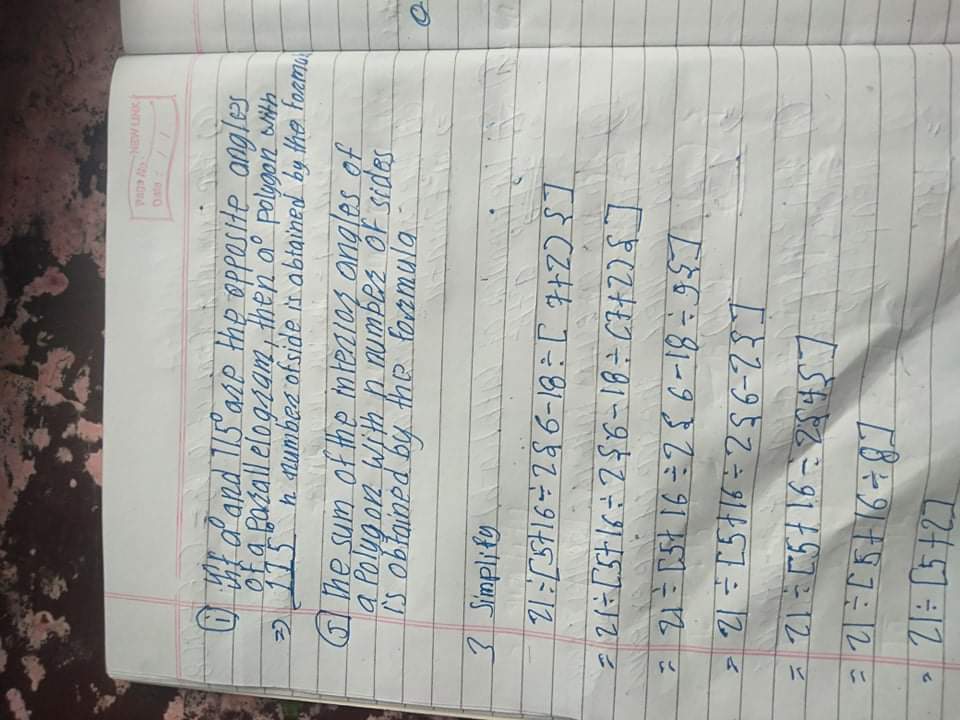 Page No. NEW LINK
Date / /
(i) If a° and 115° are the opposite angles
of a parallelogram, then a° polygon with
=> 115° n number of side is obtained by the formula
(5) The sum of the interior angles of
a Polygon with n number of sides
is obtained by the formula.
3 Simplify
21÷[5+16÷2{6-18÷(7+2)}]
= 21÷[5+16÷2{6-18÷(7+2)}]
= 21÷[5+16÷2{6-18÷9}]
= 21÷[5+16÷2{6-2}]
= 21÷[5+16÷2{4}]
= 21÷[5+16÷8]
= 21÷[5+2]